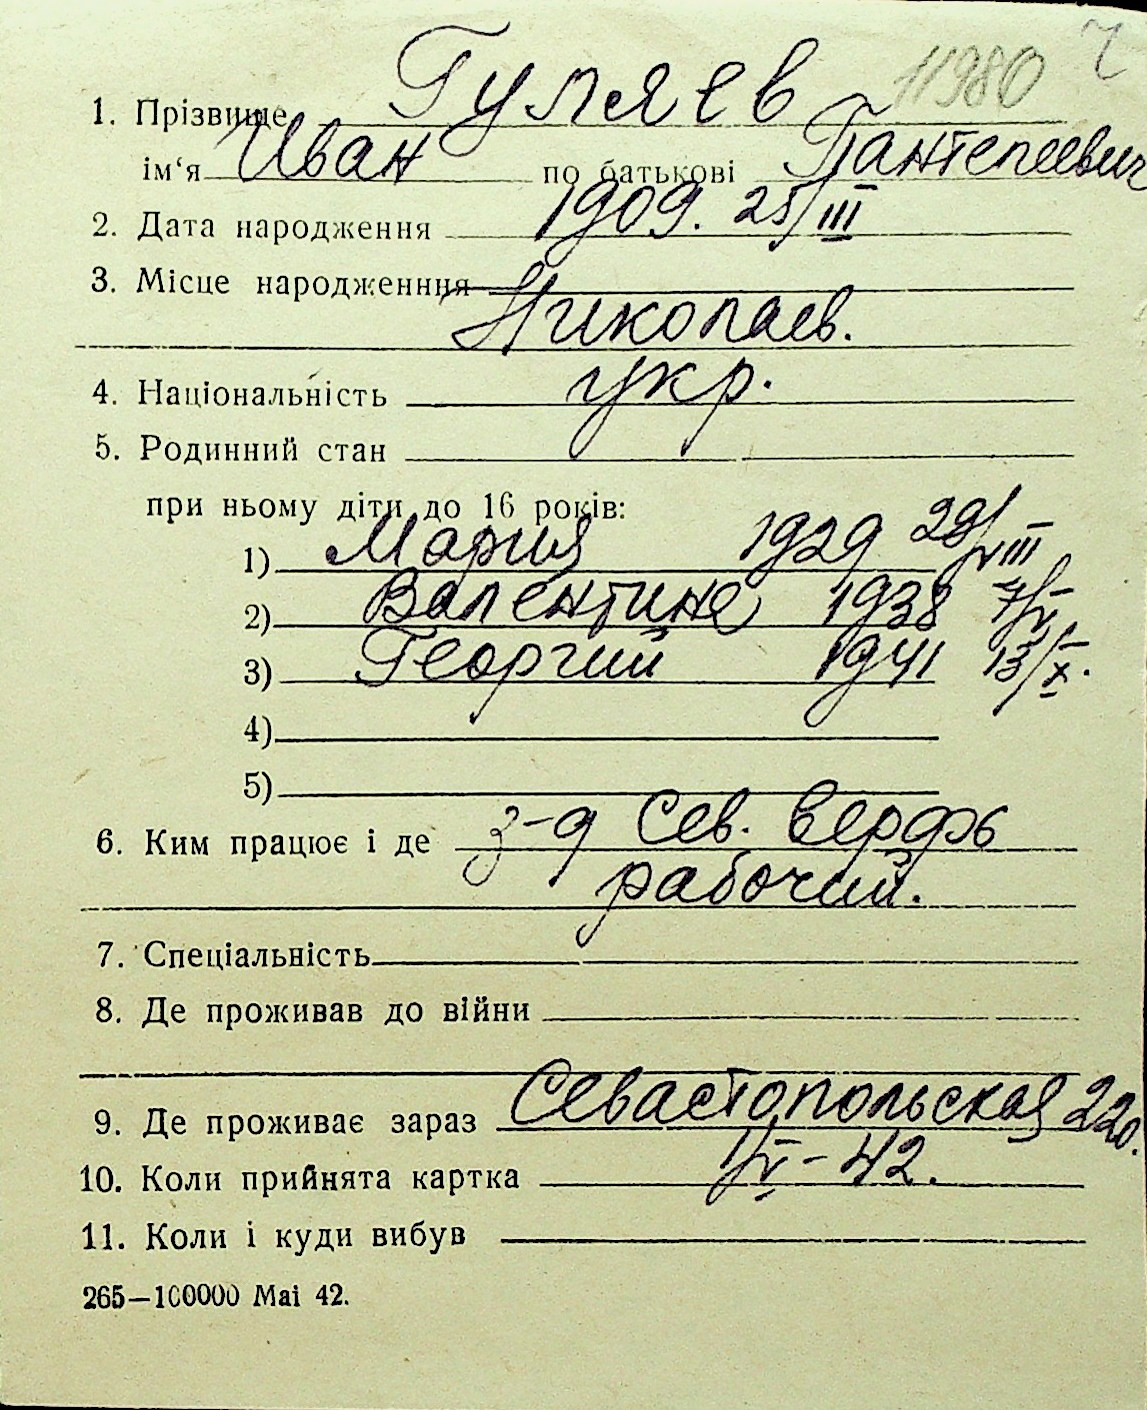 11980
1. Прізвище Гуляев
ім‘я Иван по батькові Пантелеевич
2. Дата народження 1909. 25/III
3. Місце народженння
Николаев.
4. Національність укр.
5. Родинний стан
при ньому діти до 16 років:
1) Мария 1929 29/VIII
2) Валентина 1938 7/V
3) Георгий 1941 13/X.
4)
5)
6. Ким працює і де з-д Сев. верфь
рабочий.
7. Спеціальність
8. Де проживав до війни
9. Де проживає зараз Севастопольская 220.
10. Коли прийнята картка 1/V-42.
11. Коли і куди вибув
265—100000 Маі 42.